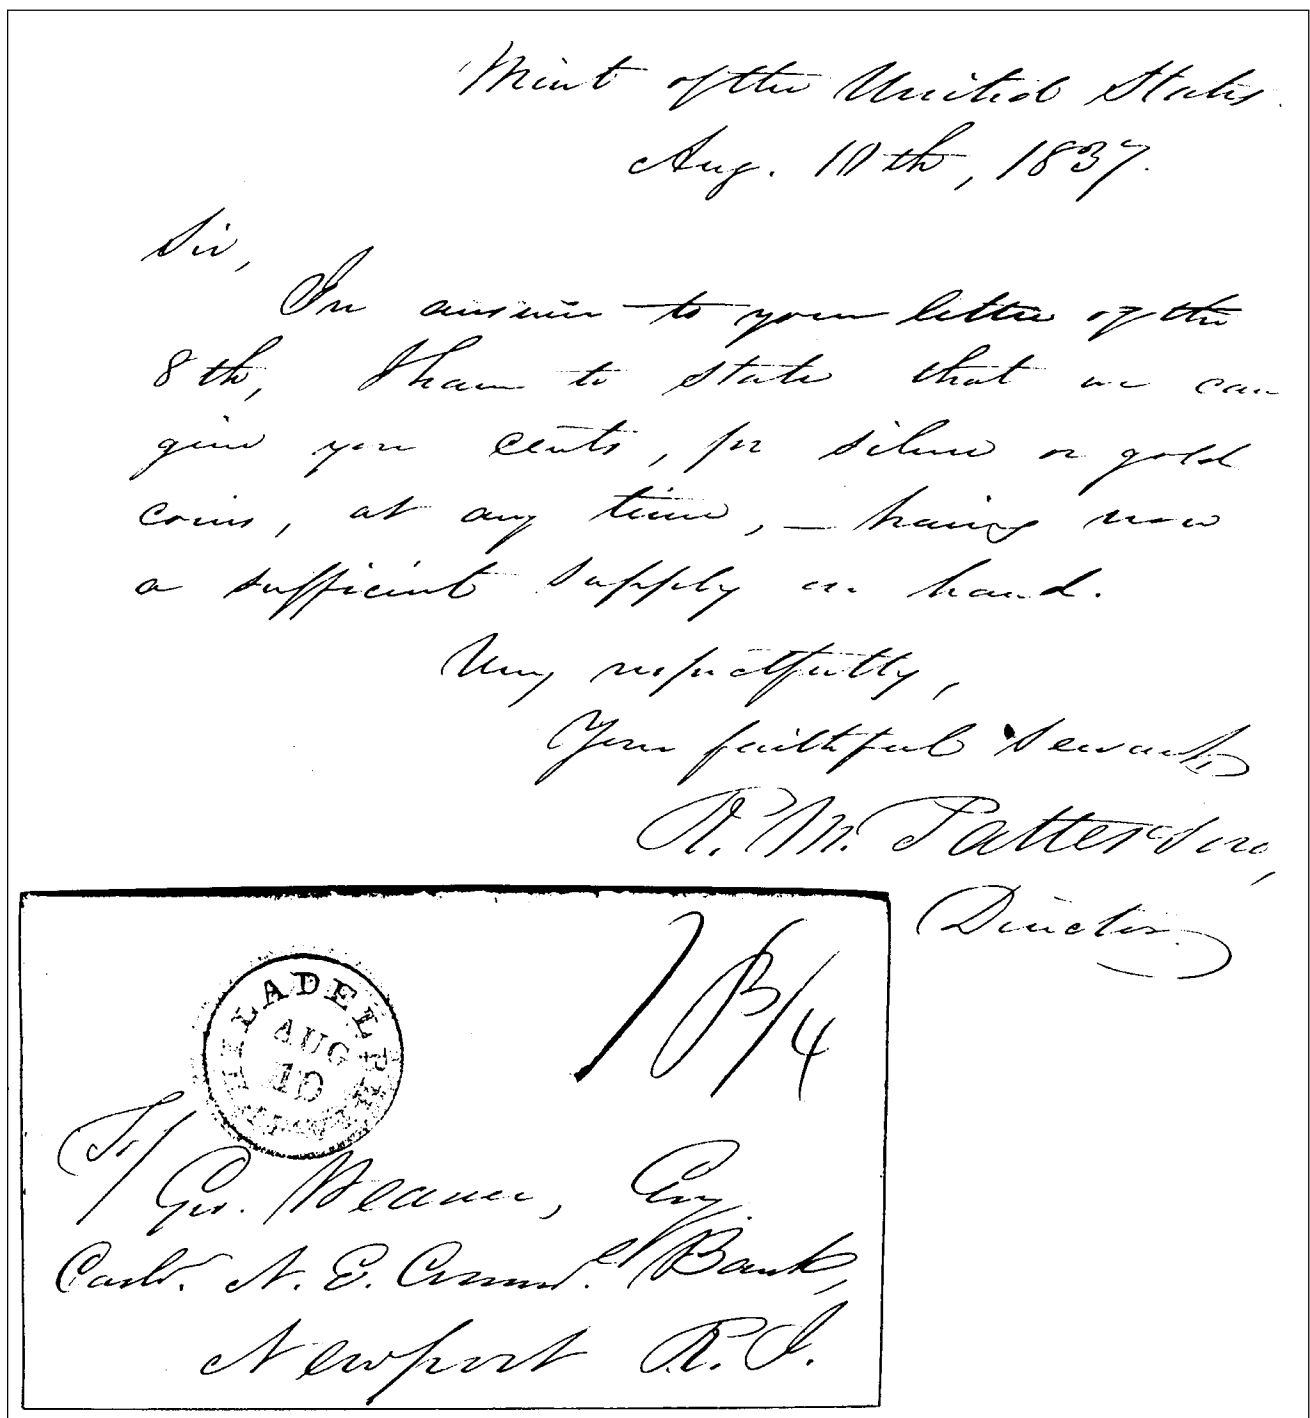 Mint of the United States.
Aug. 10th, 1837.
Sir,
In answer to your letter of the
8th, I have to state that we can
give you cents, for silver or gold
coins, at any time, — having now
a sufficient supply on hand.
Very respectfully,
Your faithful servant,
R. M. Patterson,
Director.
PHILADELPHIA
AUG
10
To/
Geo. Weaver, Esq.
Cashr. N. E. Commel. Bank,
Newport R. I.